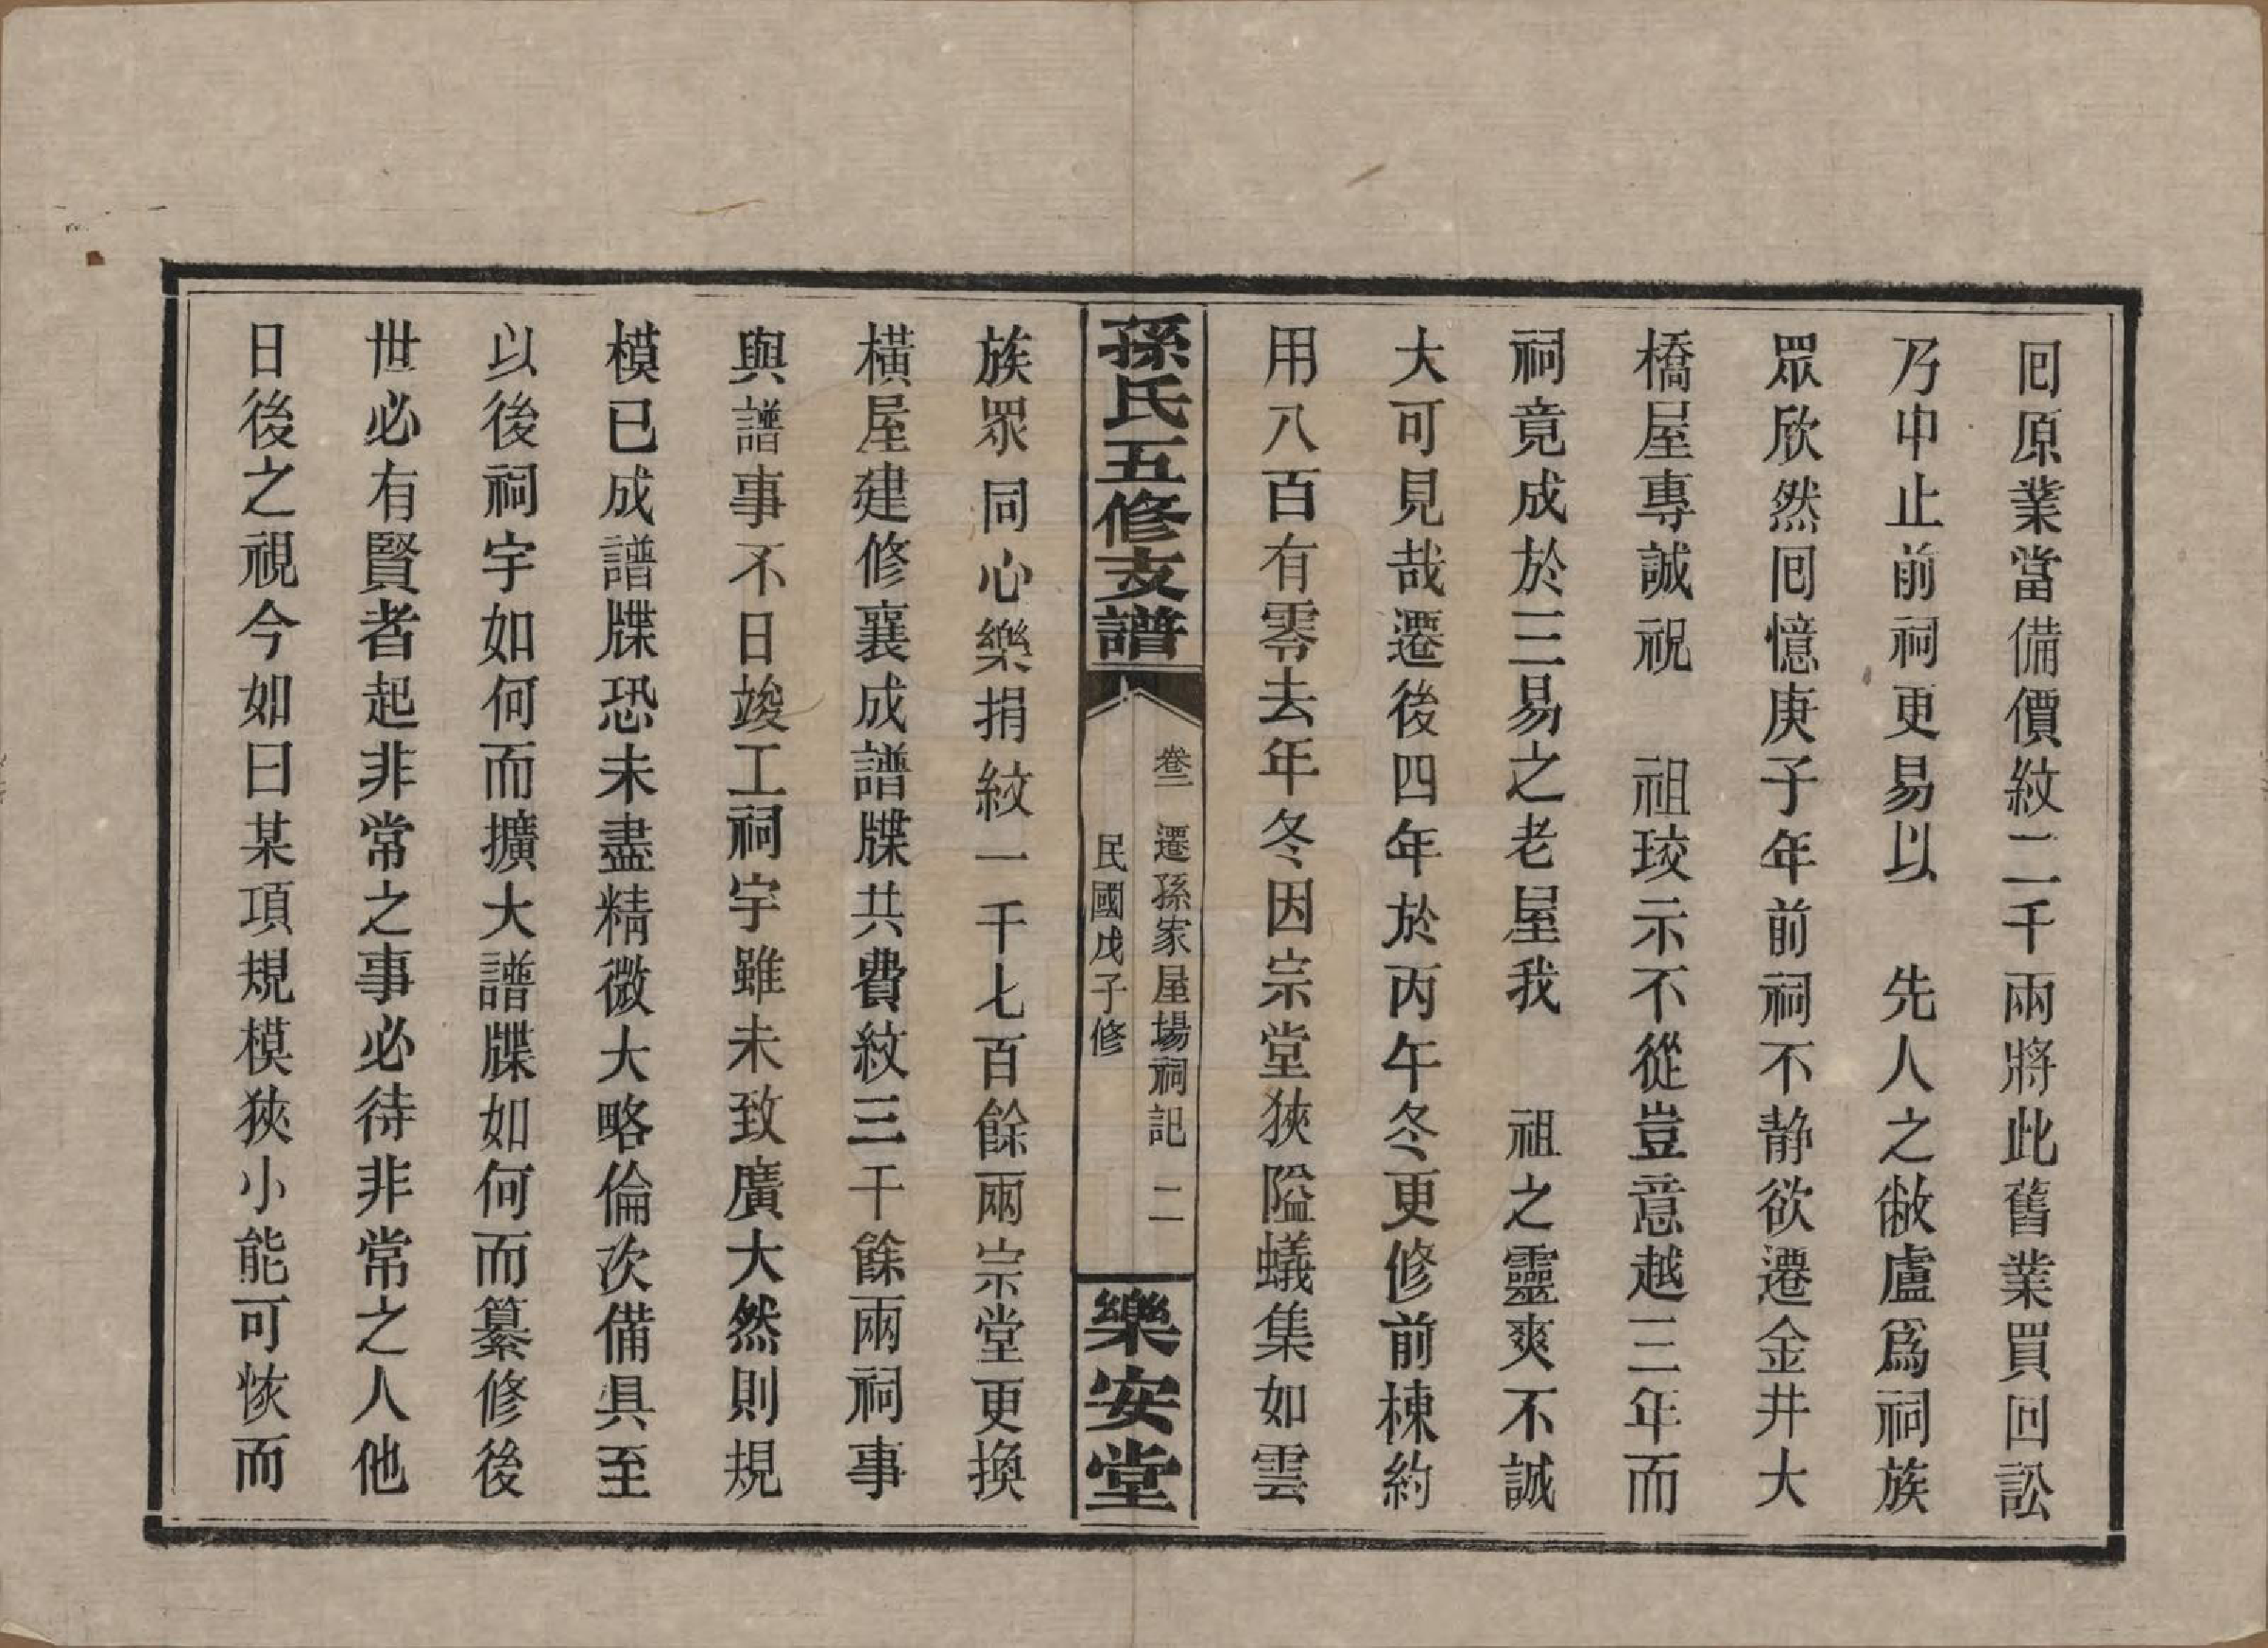 囘原業當備價紋二千兩將此舊業買回訟
乃中止前祠更易以　先人之敝盧爲祠族
眾欣然囘憶庚子年前祠不静欲遷金井大
橋屋專誠祝　祖珓示不從豈意越三年而
祠竟成於三易之老屋我　祖之靈爽不誠
大可見哉遷後四年於丙午冬更修前棟約
用八百有零去年冬因宗堂狹隘蟻集如雲
孫氏五修支譜
卷二　遷孫家屋場祠記　二
民國戊子修
樂安堂
族眾同心樂捐紋一千七百餘兩宗堂更換
橫屋建修襄成譜牒共費紋三千餘兩祠事
與譜事不日竣工祠宇雖未致廣大然則規
模已成譜牒恐未盡精微大略倫次備具至
以後祠宇如何而擴大譜牒如何而纂修後
世必有賢者起非常之事必待非常之人他
日後之視今如曰某項規模狹小能可恢而